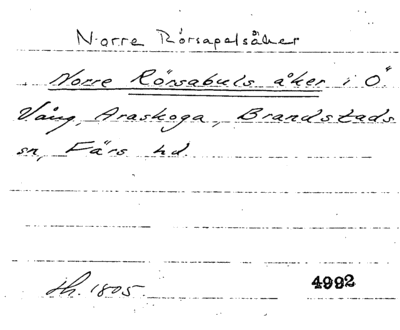 Norre Rörsapelsåker
Norre Rörsabuls åker i Ö.
Vång, Araskoga, Brandstads
sn, Färs hd.
Sh. 1805.
4992